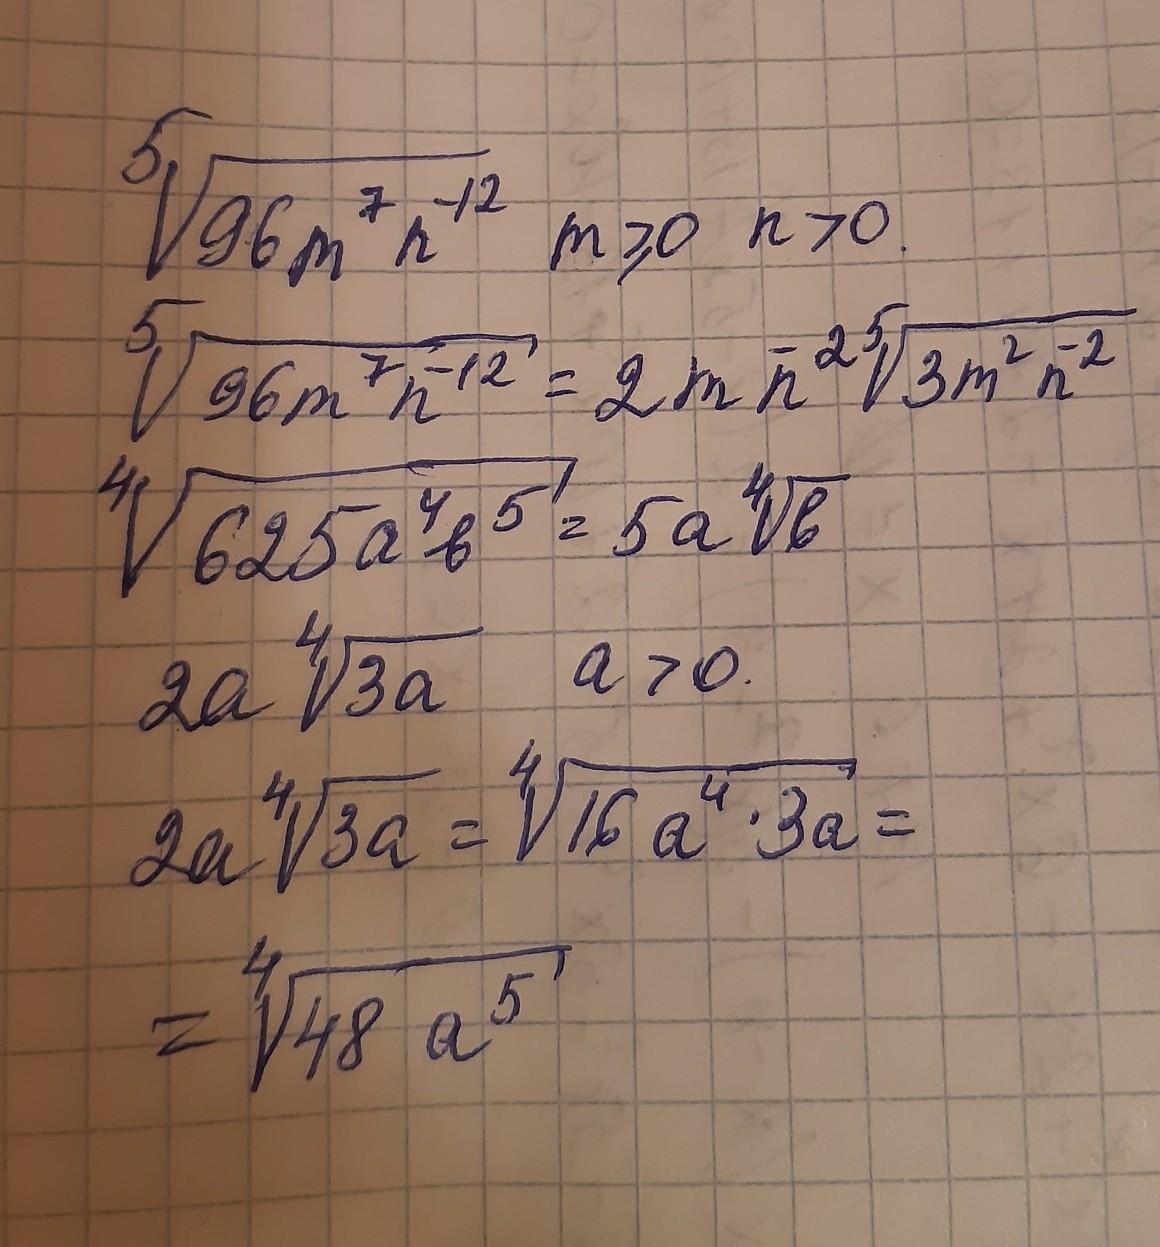 ⁵√96m⁷n⁻¹² m⩾0 n>0.
⁵√96m⁷n⁻¹² = 2mn⁻² ⁵√3m²n⁻²
⁴√625a⁴b⁵ = 5a ⁴√b
2a ⁴√3a a>0.
2a ⁴√3a = ⁴√16a⁴·3a =
= ⁴√48 a⁵